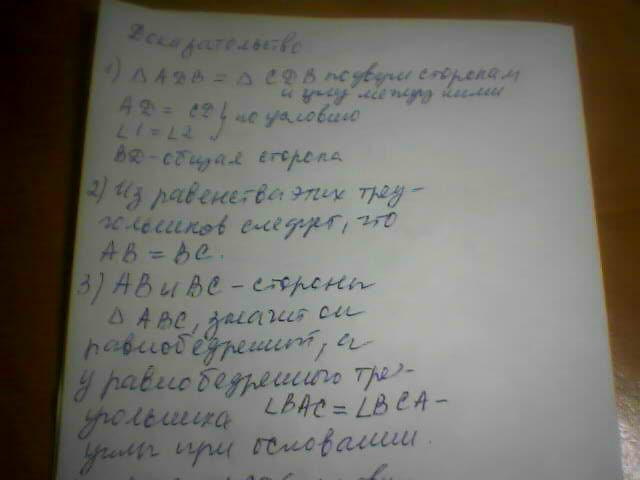 Доказательство
1) Δ ADB = Δ CDB по двум сторонам
и углу между ними
AD = CD } по условию
∠1 = ∠2
BD - общая сторона
2) Из равенства этих треу-
гольников следует, что
AB = BC.
3) AB и BC - стороны
Δ ABC, значит он
равнобедренный, а
у равнобедренного тре-
угольника ∠BAC = ∠BCA -
углы при основании.